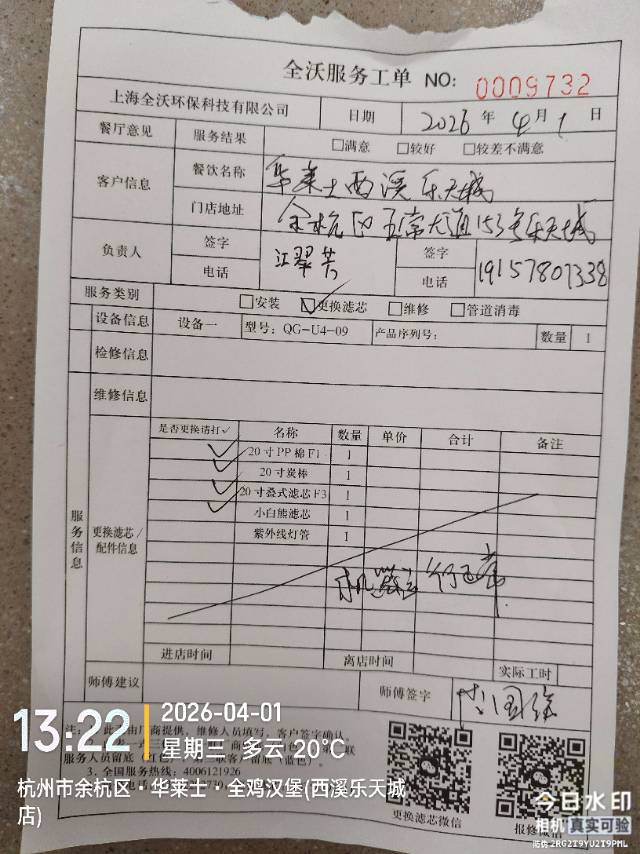 全沃服务工单 NO: 0009732
上海全沃环保科技有限公司 日期 2026 年 4 月 1 日
餐厅意见 服务结果 □满意 □较好 □较差不满意
客户信息 餐饮名称 华莱士西溪乐天城
门店地址 余杭区五常大道153号乐天城
负责人 签字 江翠芳 签字
电话 电话 19157807338
服务类别 □安装 ☑更换滤芯 □维修 □管道消毒
设备信息 设备一 型号: QG-U4-09 产品序列号: 数量 1
检修信息
维修信息
服务信息
更换滤芯/配件信息
是否更换请打✓ 名称 数量 单价 合计 备注
✓ 20寸PP棉F1 1
✓ 20寸炭棒 1
✓ 20寸叠式滤芯F3 1
✓ 小白熊滤芯 1
紫外线灯管 1
机器
进店时间 离店时间 实际工时
师傅建议 师傅签字
注:
3、全国服务热线: 4006121926
更换滤芯微信 报修微信
13:22
2026-04-01
星期三 多云 20℃
杭州市余杭区·华莱士·全鸡汉堡(西溪乐天城店)
今日水印
相机 真实可验
防伪 2RG2T9YU2T9PML